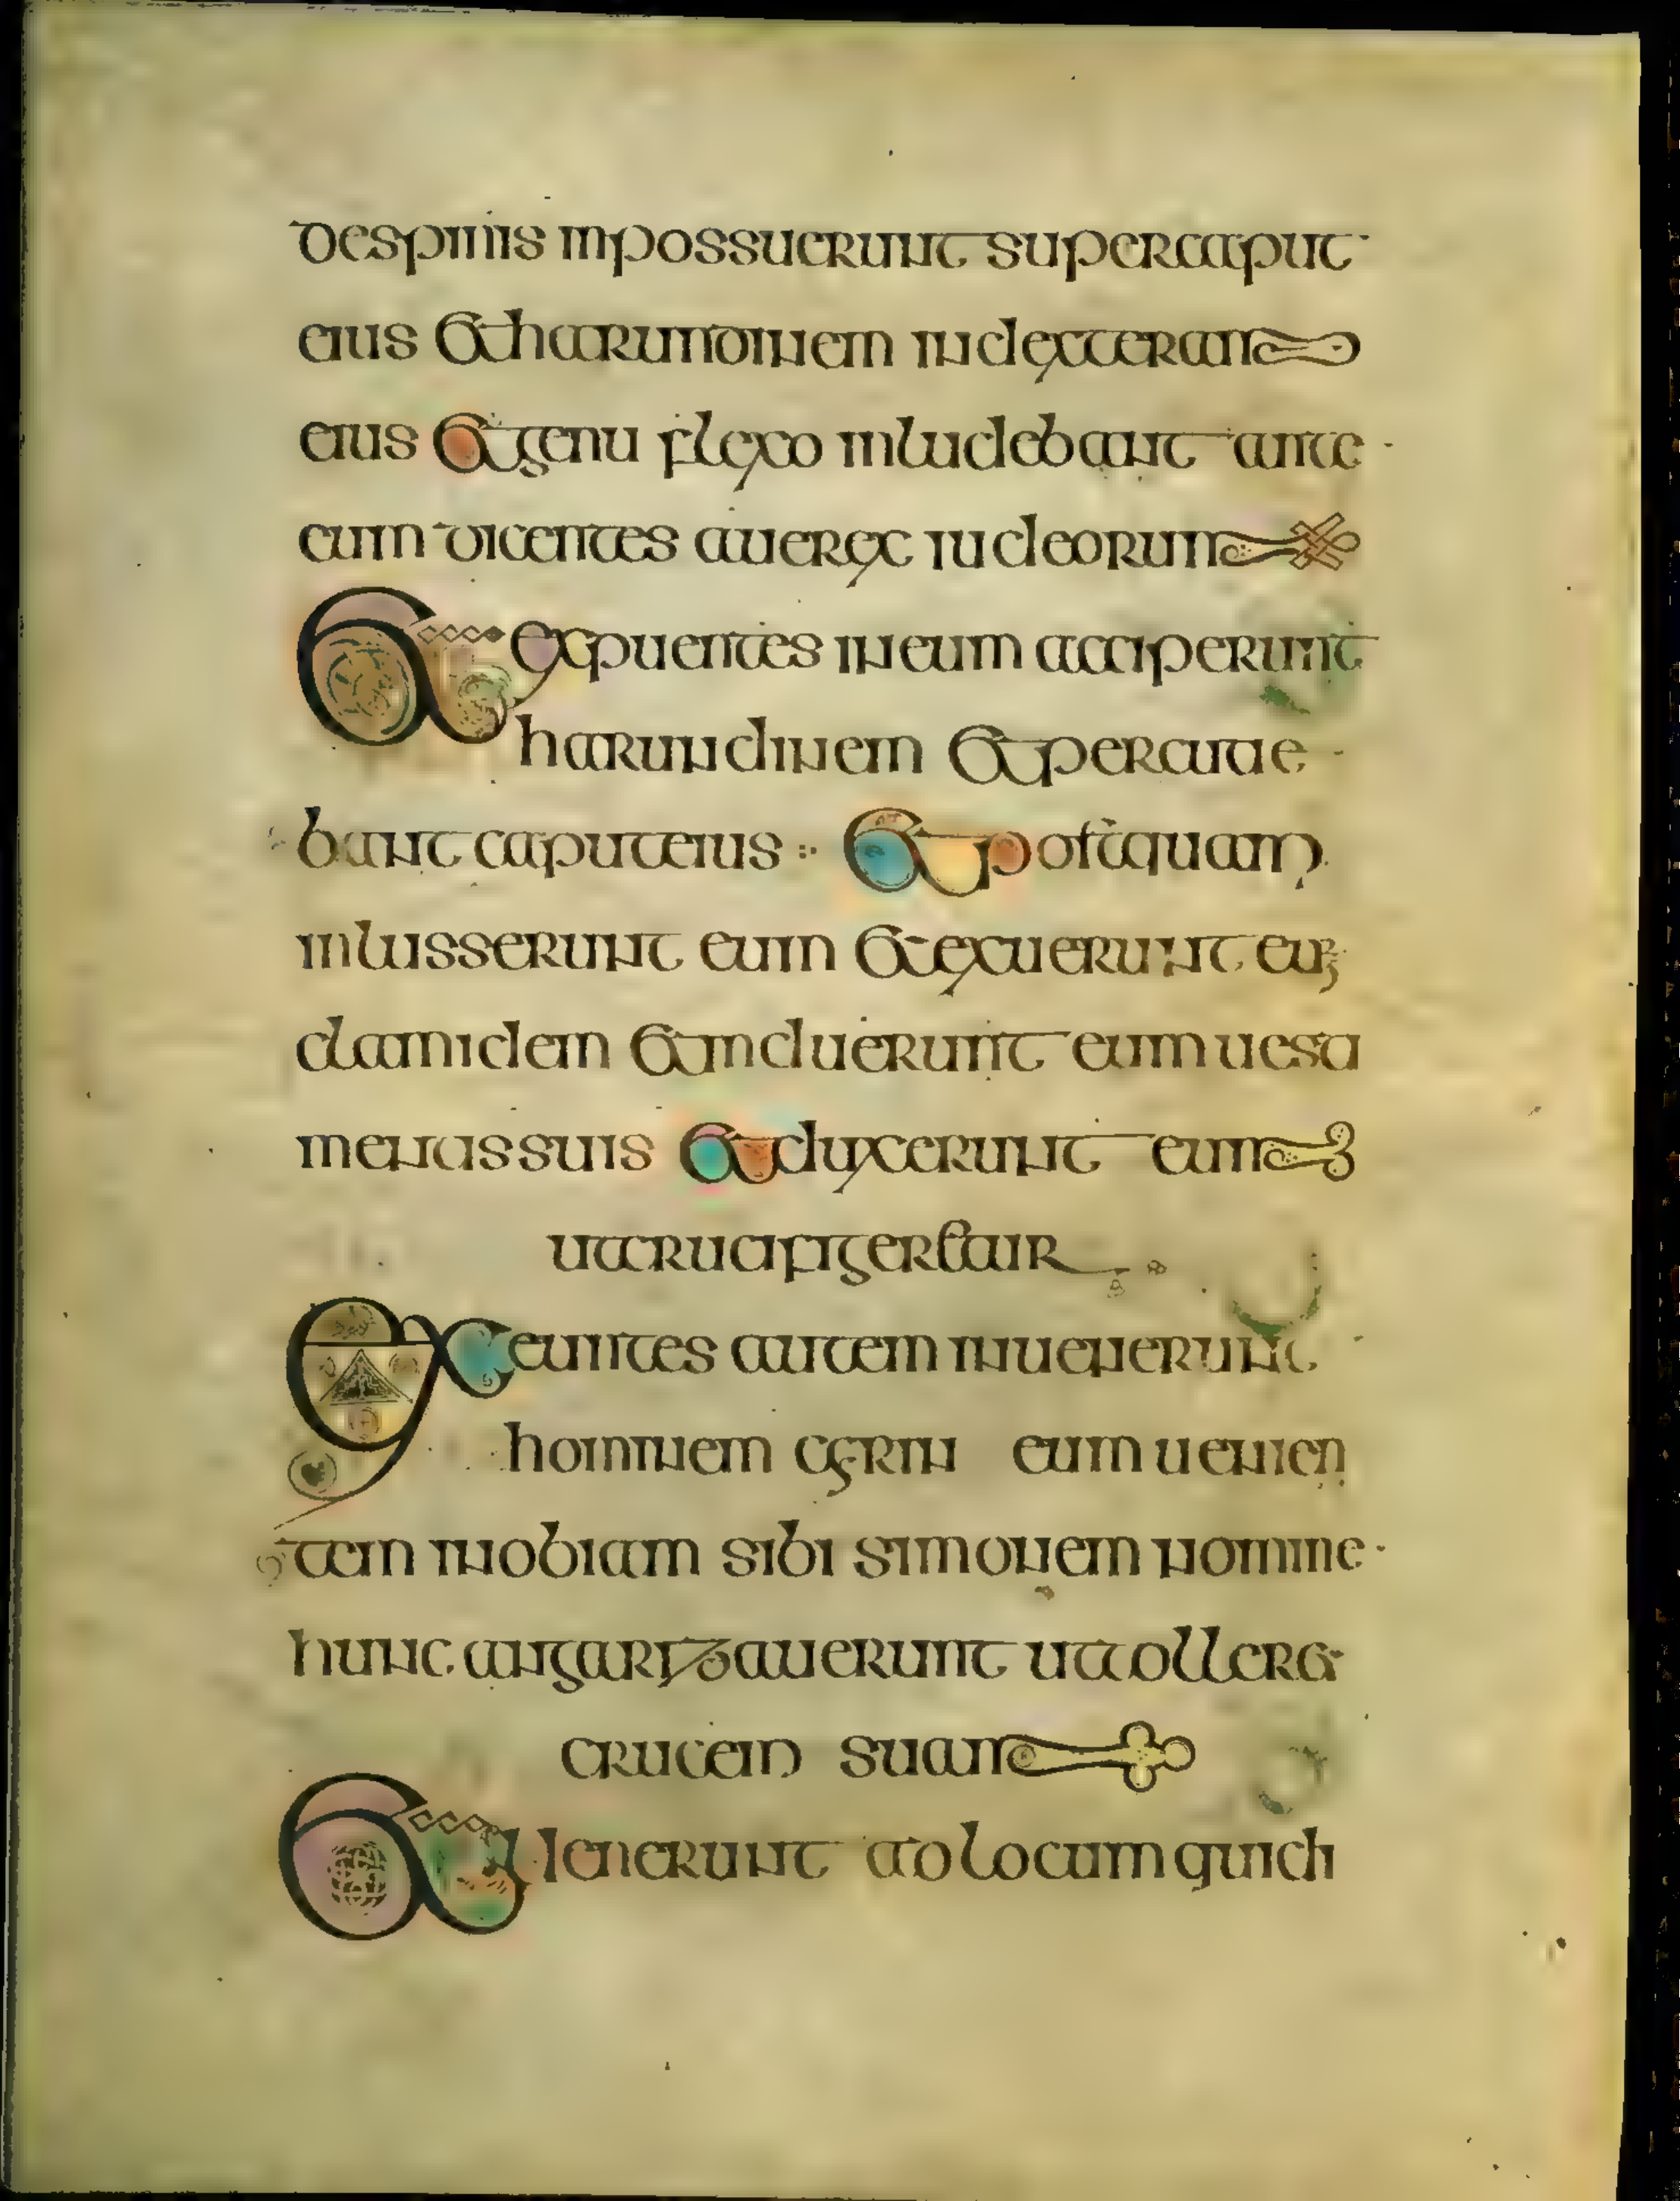 despinis inpossuerunt supercaput
eius et harundinem in dexteram
eius et genu flexo inludebant ante
eum dicentes ave rex iudeorum
Et expuentes in eum acciperunt
harundinem et percutie
bant caput eius et postquam
inlusserunt eum et exuerunt eum
clamidem et induerunt eum vesti
mentis suis et duxcerunt eum
ut crucifigeretur
Exceuntes autem invenerunt
hominem cyrin eum venien
tem inobiam sibi simonem nomine
hunc angarizaverunt ut tolleret
crucem suam
Et venerunt ad locum qui di